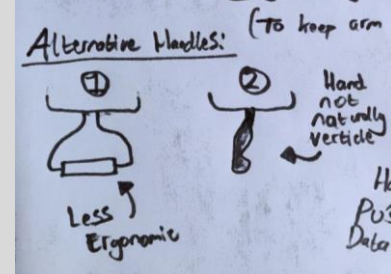 (To keep arm
Alternative Handles:
1
2
Hand
not
naturally
verticle
Less
Ergonomic
Data